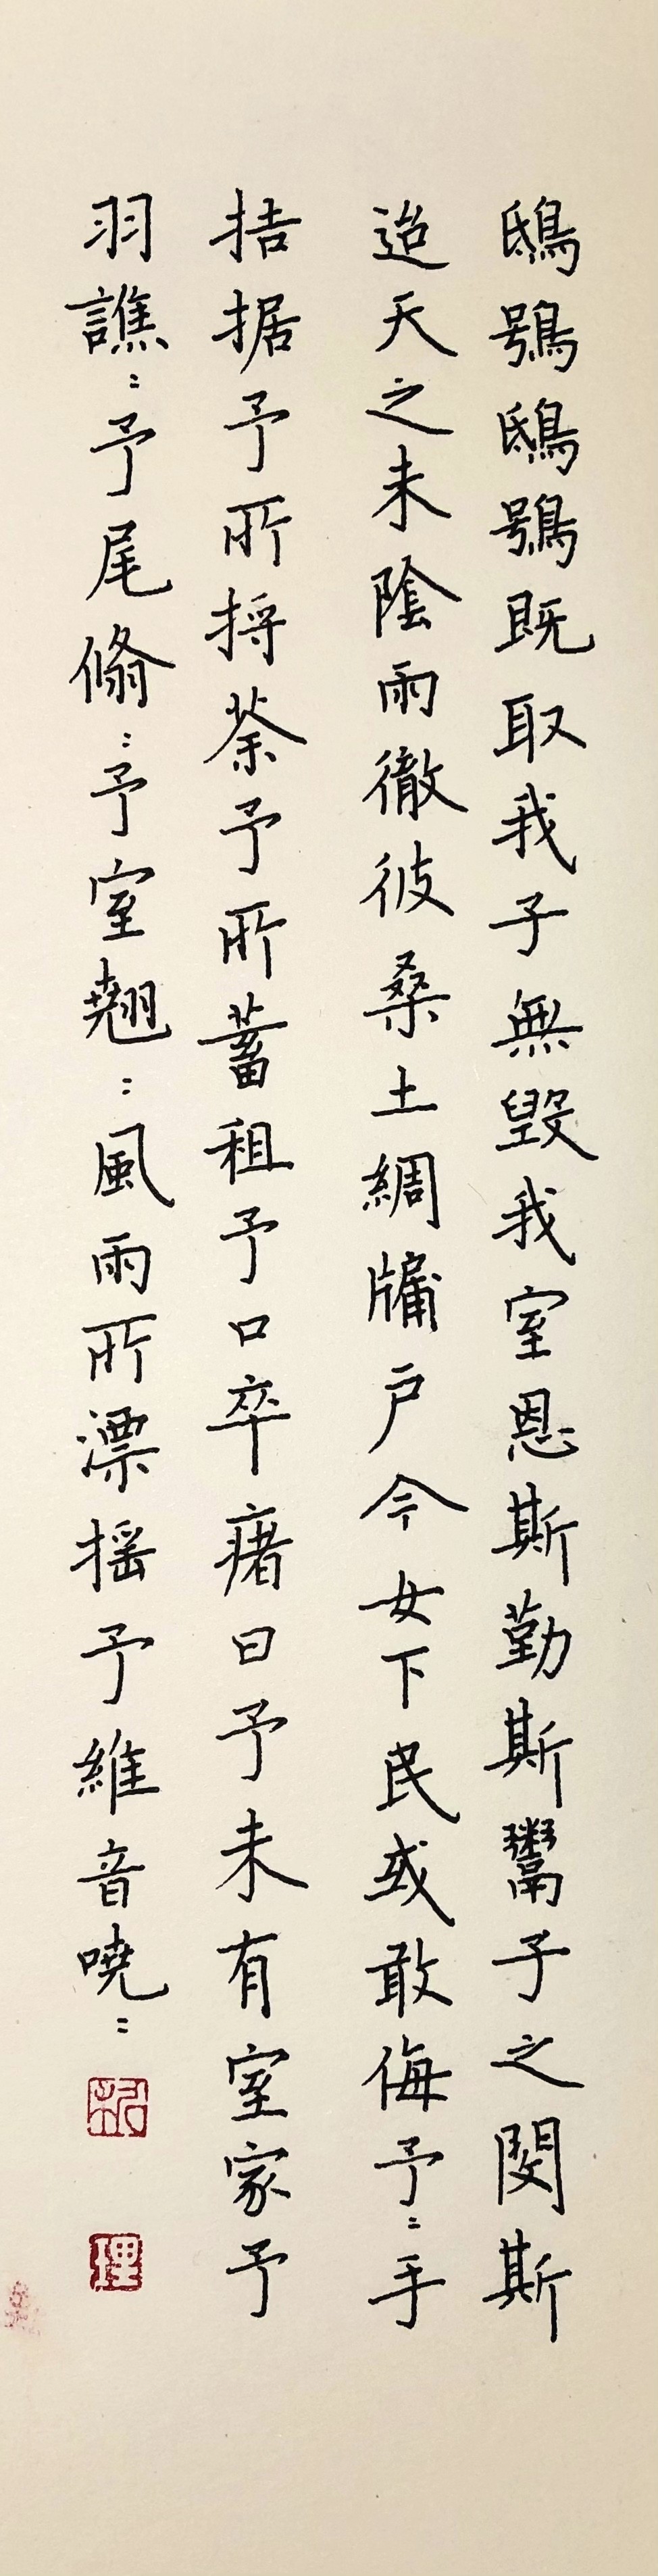 鴟鴞鴟鴞既取我子無毀我室恩斯勤斯鬻子之閔斯
迨天之未陰雨徹彼桑土綢牖户今女下民或敢侮予〻手
拮据予所捋荼予所蓄租予口卒瘏曰予未有室家予
羽譙〻予尾翛〻予室翹〻風雨所漂搖予維音嘵〻
理